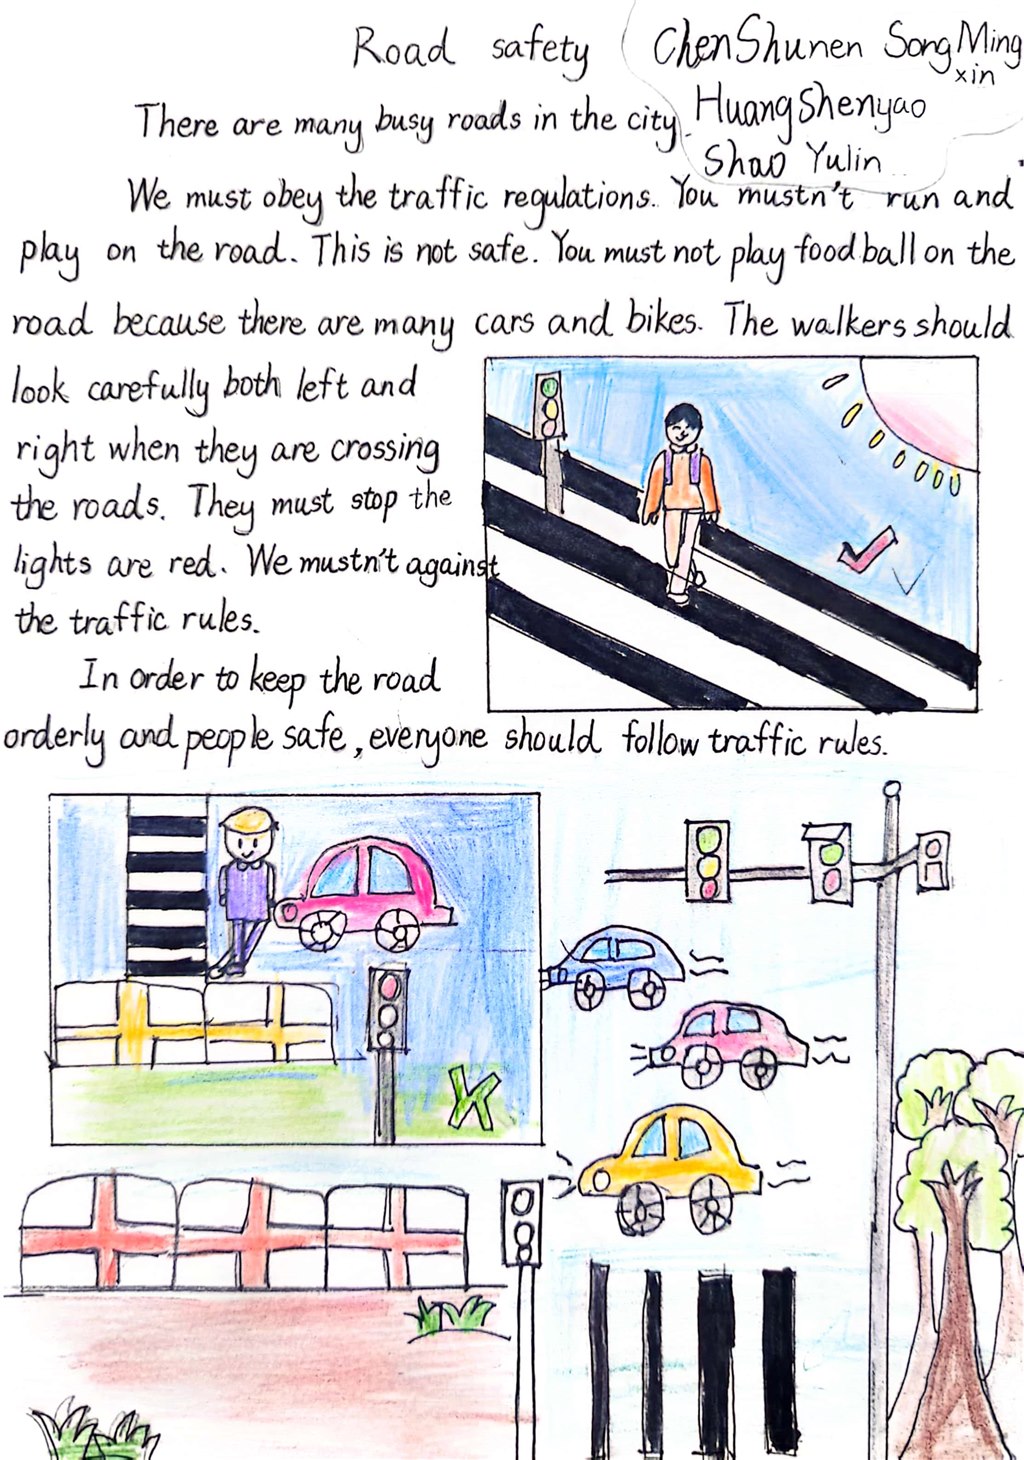 Road safety
Chen Shunen Song Ming
xin
Huang Shenyao
Shao Yulin
There are many busy roads in the city.
We must obey the traffic regulations. You mustn't run and
play on the road. This is not safe. You must not play foodball on the
road because there are many cars and bikes. The walkers should
look carefully both left and
right when they are crossing
the roads. They must stop the
lights are red. We mustn't against
the traffic rules.
In order to keep the road
orderly and people safe, everyone should follow traffic rules.